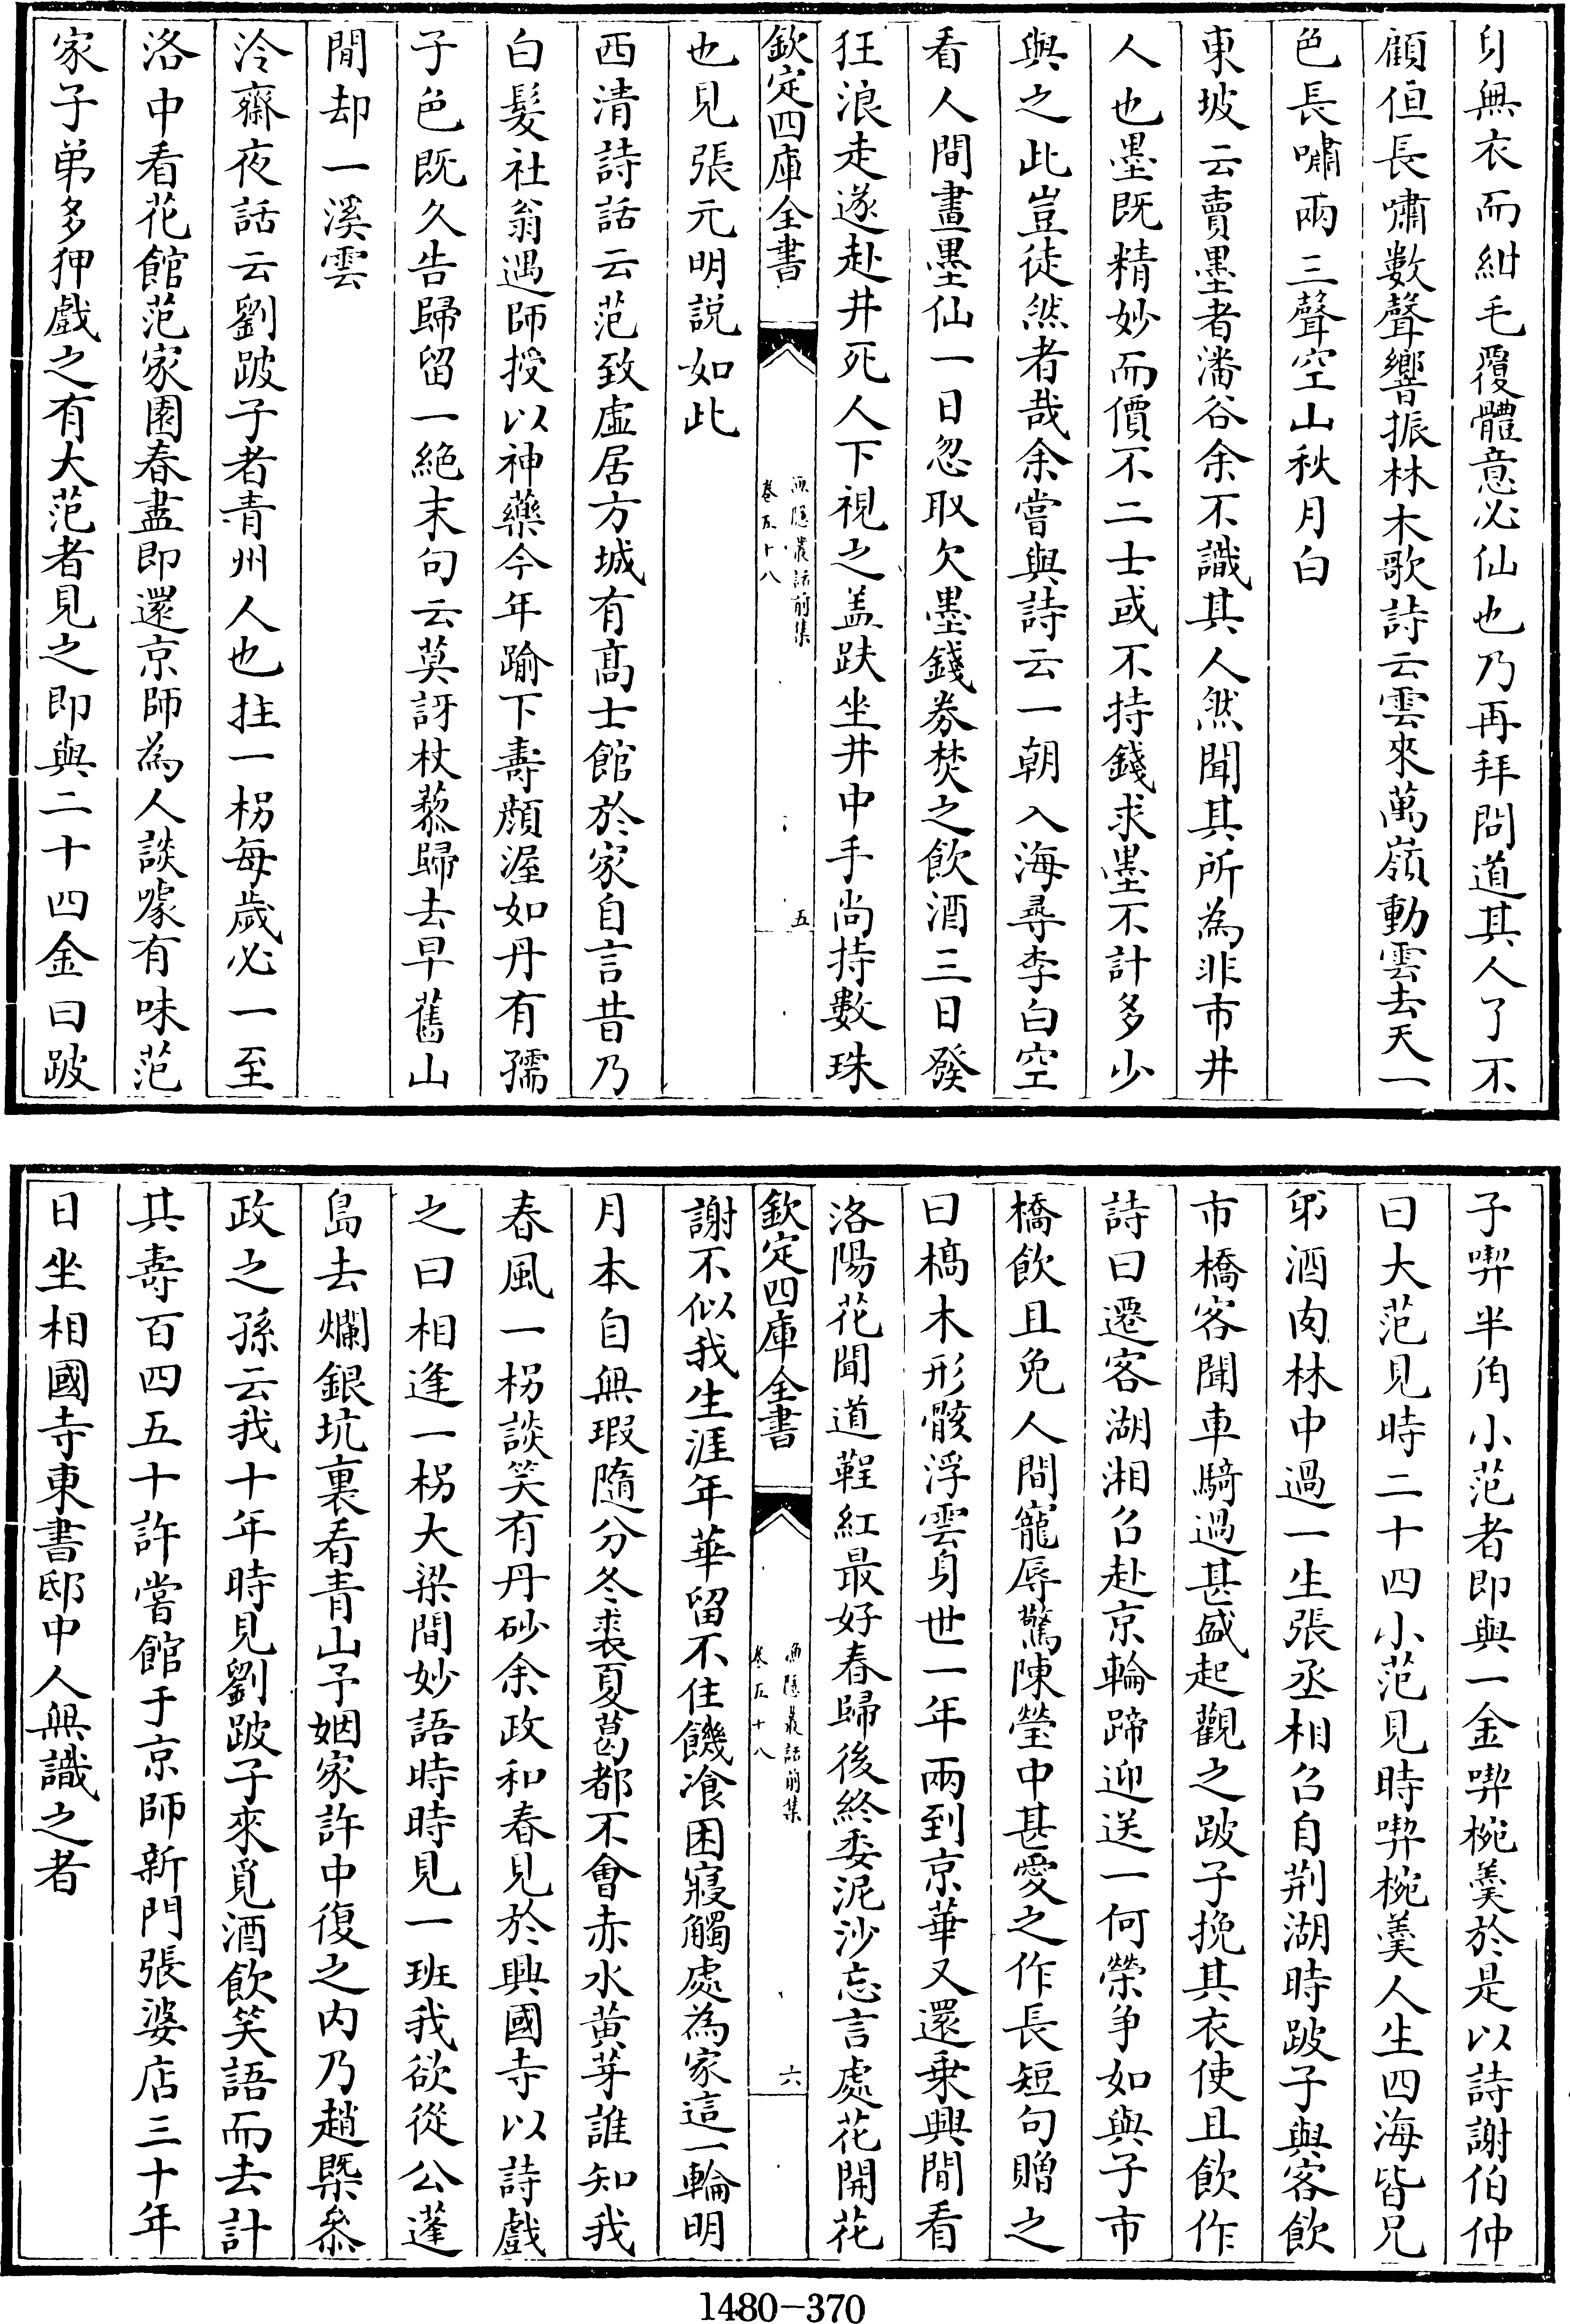 身無衣而紺毛覆體意必仙也乃再拜問道其人了不
顧但長嘯數聲響振林木歌詩云雲來萬嶺動雲去天一
色長嘯兩三聲空山秋月白
東坡云賣墨者潘谷余不識其人然聞其所為非市井
人也墨既精妙而價不二士或不持錢求墨不計多少
與之此豈徒然者哉余嘗與詩云一朝入海尋李白空
看人間畫墨仙一日忽取欠墨錢券焚之飲酒三日發
狂浪走遂赴井死人下視之盖趺坐井中手尚持數珠
欽定四庫全書
漁隱叢話前集
卷五十八
五
也見張元明説如此
西清詩話云范致虛居方城有髙士館於家自言昔乃
白髮社翁遇師授以神藥今年踰下壽顔渥如丹有孺
子色既久告歸留一絶末句云莫訝杖藜歸去早舊山
閒却一溪雲
冷齋夜話云劉跛子者青州人也拄一枴每歲必一至
洛中看花館范家園春盡即還京師為人談噱有味范
家子弟多狎戲之有大范者見之即與二十四金曰跛
子喫半角小范者即與一金喫椀羮於是以詩謝伯仲
曰大范見時二十四小范見時喫椀羮人生四海皆兄
弟酒肉林中過一生張丞相召自荆湖時跛子與客飲
市橋客聞車騎過甚盛起觀之跛子挽其衣使且飲作
詩曰遷客湖湘召赴京輪蹄迎送一何榮争如與子市
橋飲且免人間寵辱驚陳瑩中甚愛之作長短句贈之
曰槁木形骸浮雲身世一年兩到京華又還乗興閒看
洛陽花聞道鞓紅最好春歸後終委泥沙忘言處花開花
欽定四庫全書
漁隱叢話前集
卷五十八
六
謝不似我生涯年華留不住饑飡困寢觸處為家這一輪明
月本自無瑕隨分冬裘夏葛都不會赤水黄芽誰知我
春風一枴談笑有丹砂余政和春見於興國寺以詩戲
之曰相逢一枴大梁間妙語時時見一班我欲從公蓬
島去爛銀坑裏看青山予姻家許中復之内乃趙槩叅
政之孫云我十年時見劉跛子來覓酒飲笑語而去計
其壽百四五十許嘗館于京師新門張婆店三十年
日坐相國寺東書邸中人無識之者
1480-370